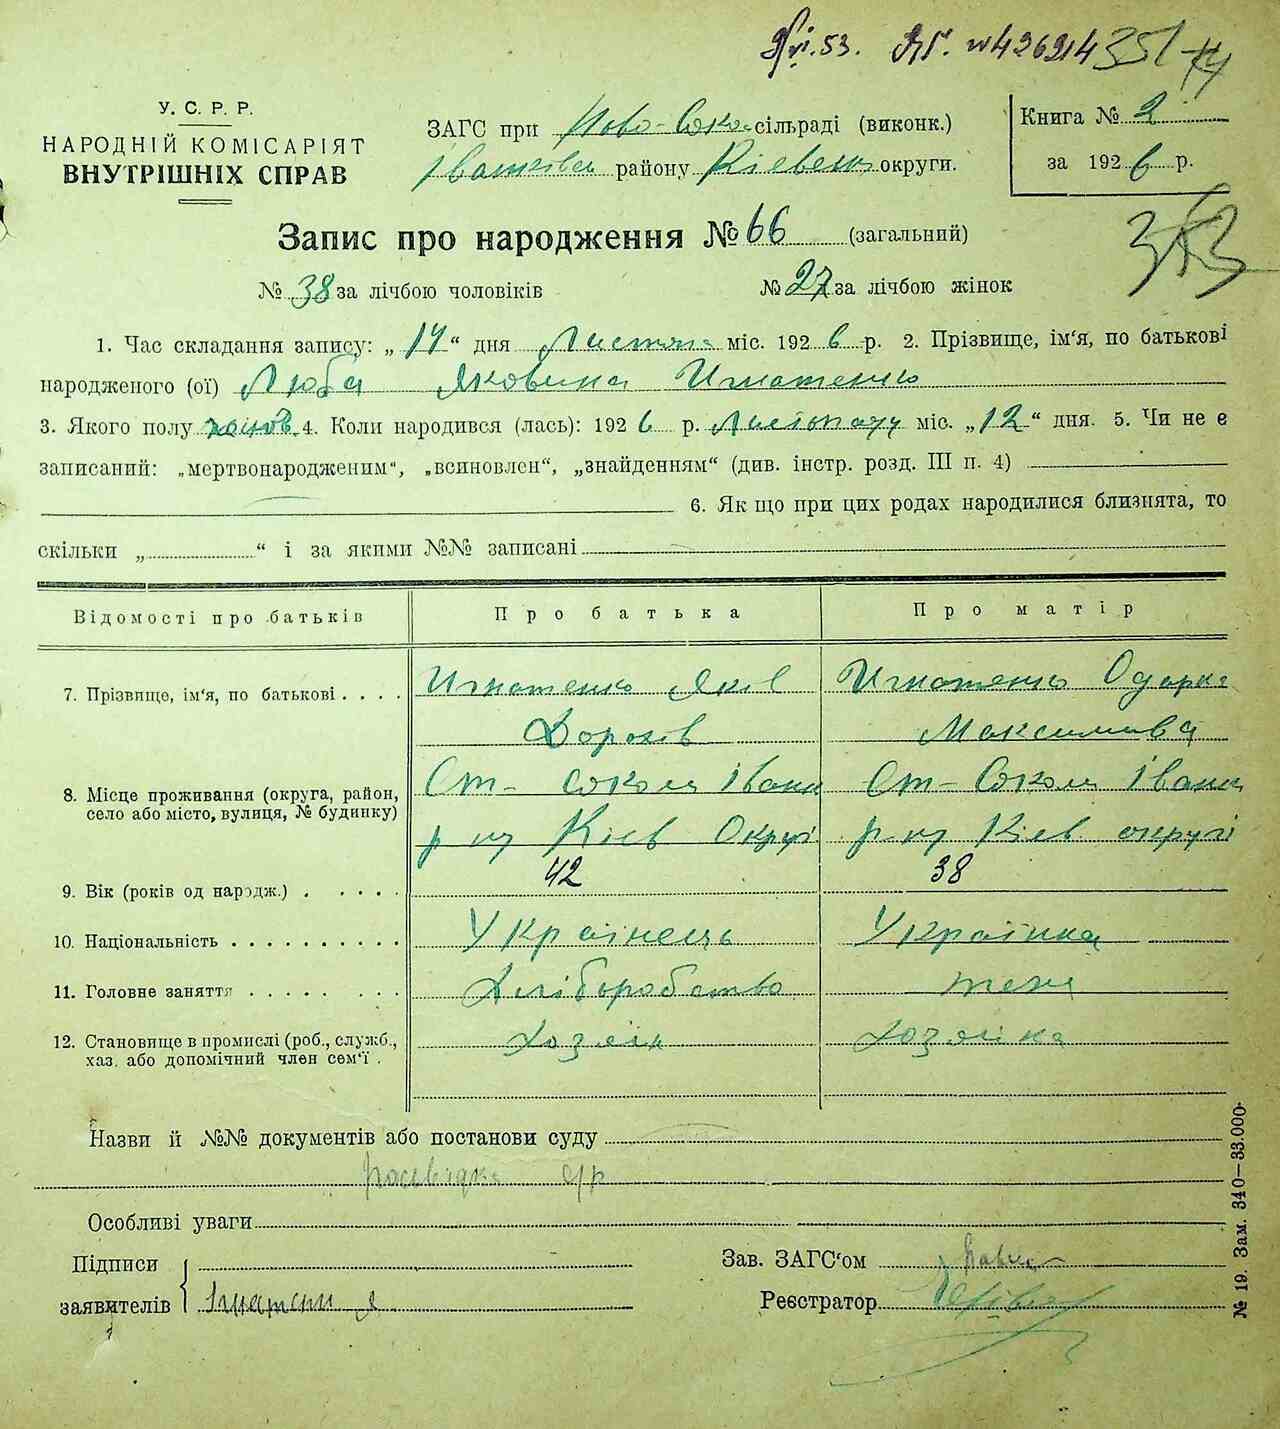 VI.53. № 426214 351
У. С. Р. Р.
НАРОДНІЙ КОМІСАРІЯТ
ВНУТРІШНІХ СПРАВ
ЗАГС при Ново-Соко сільраді (виконк.)
району округи.
Книга № 2
за 1926 р.
Запис про народження № 66 (загальний)
353
№ 38 за лічбою чоловіків № 27 за лічбою жінок
1. Час складання запису: „14“ дня Листопа міс. 1926 р. 2. Прізвище, ім‘я, по батькові
народженого (ої) Люба Яковина Игнатенко
3. Якого полу 4. Коли народився (лась): 1926 р. Листопаду міс. „12“ дня. 5. Чи не є
записаний: „мертвонародженим“, „всиновлен“, „знайденням“ (див. інстр. розд. III п. 4)
6. Як що при цих родах народилися близнята, то
скільки „ “ і за якими №№ записані
Відомості про батьків Про батька Про матір
7. Прізвище, ім‘я, по батькові . . . . Игнатенко Яків Игнатенко Одарка
Дорохів Максимова
8. Місце проживання (округа, район, Ст- Соколи Іванк Ст- Соколи Іванк
село або місто, вулиця, № будинку) р ну Кіев Округі р ну Кіев округі
9. Вік (років од народж.) . . . . . 42 38
10. Національність . . . . . . . . . . Українець Українка
11. Головне заняття . . . . . . . . Хліборобство жена
12. Становище в промислі (роб., служб., Хозяін Хозяйка
хаз. або допомічний член сем‘ї .
Назви й №№ документів або постанови суду
Особливі уваги
Підписи
заявителів
Зав. ЗАГС‘ом
Реєстратор
№ 19. Зам. 340—33.000